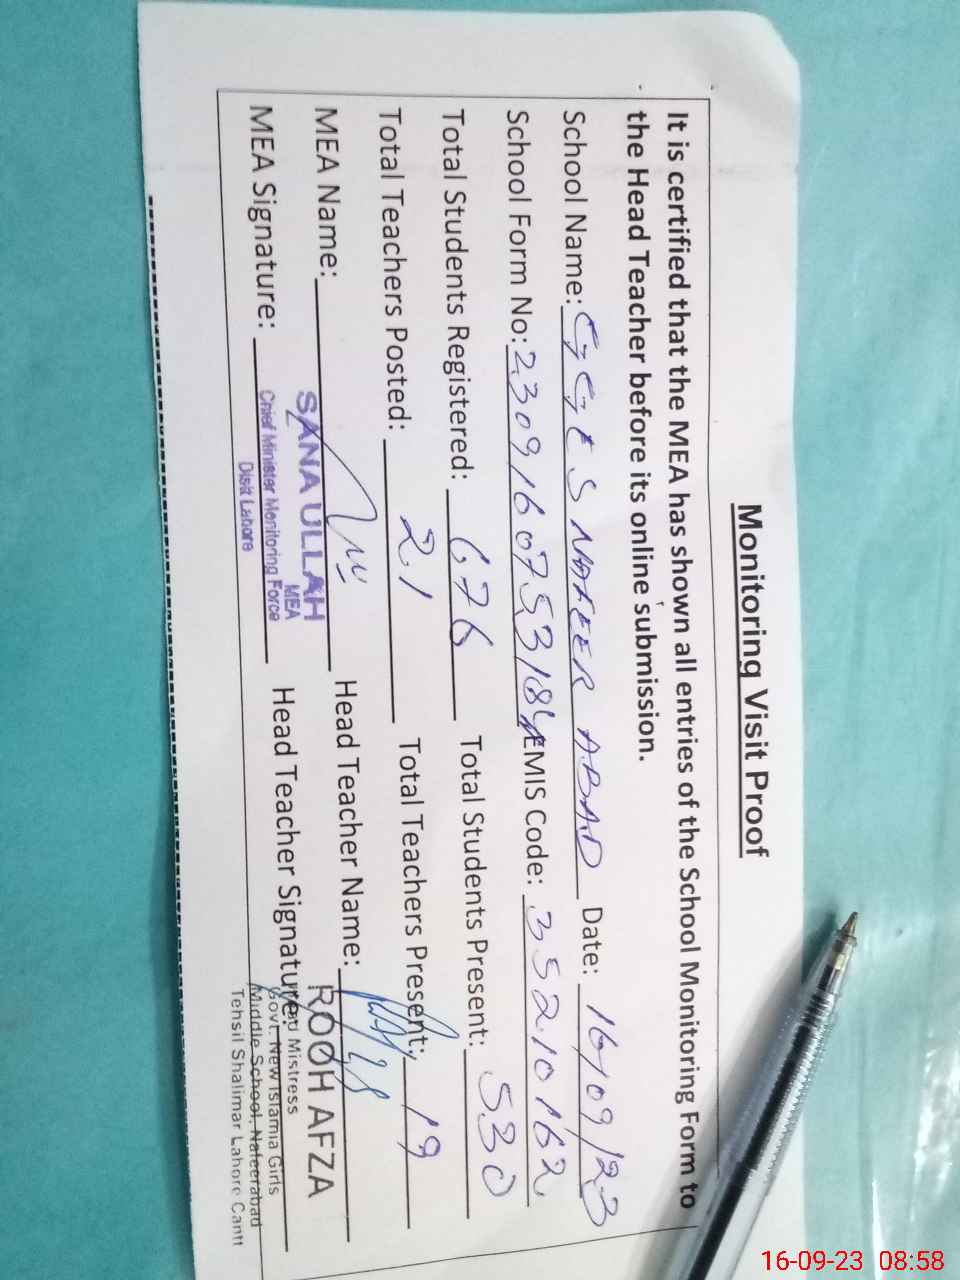 Monitoring Visit Proof
It is certified that the MEA has shown all entries of the School Monitoring Form to
the Head Teacher before its online submission.
School Name: GGES NADEER ABAD Date: 16/09/23
School Form No: 230916075318 EMIS Code: 35210162
Total Students Registered: 676 Total Students Present: 530
Total Teachers Posted: 21 Total Teachers Present: 19
MEA Name: Head Teacher Name:
MEA Signature: Head Teacher Signature:
SANA ULLAH
MEA
Chief Minister Monitoring Force
Distt Lahore
ROOH AFZA
Mistress
Govt. New Islamia Girls
Middle School, Nafeerabad
Tehsil Shalimar Lahore Cantt
16-09-23 08:58